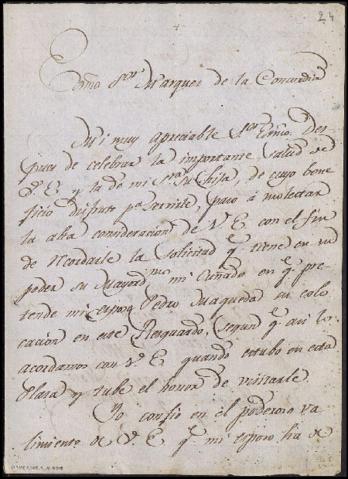 24
Exmo Sor Marques de la Concordia
Mi muy apreciable Sor Exmo. Des
pues de celebrar la importante salud de
V. E. y la de mi Sra su hija de cuyo bene
ficio disfruto pr. paso á molestar
la alta consideracion de V. E. con el fin
de recordarle la solicitud q. tiene en su
poder su Mayordmo mi Cuñado en q. pre
tende mi esposo Pedro Maqueda su colo
cacion en este Resguardo, segun q. asi lo
acordamos con V. E. quando estubo en esta
Plaza y tube el honor de visitarle.
Yo confio en el poderoso va
limiento de V. E. q. mi esposo ha de